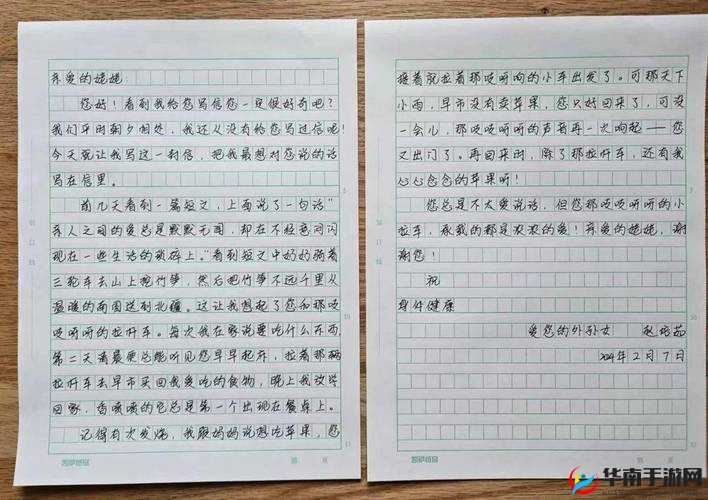 亲爱的姥姥：
您好！看到我给您写信您一定很好奇吧？
我们平时朝夕相处，我还从没有给您写过信呢！
今天就让我写这一封信，把我最想对您说的话
写在信里。
前几天看到一篇短文，上面说了一句话"
亲人之间的爱总是默默无闻，却在不经意间闪
现在一些生活的琐碎上。"看到短文中奶奶骑着
三轮车去山上挖竹笋，然后把竹笋不远千里从
温暖的南国送到北疆。这让我想起了您和那吱
吱呀呀的拉杆车。每次我在家说要吃什么东西，
第二天清晨便总能听见您早早起床，拉着那辆
拉杆车去早市买回我爱吃的食物，晚上我放学
回家，香喷喷的它总是第一个出现在餐桌上。
记得有次发烧，我跟妈妈说想吃苹果，您
接着就拉着那吱吱呀响的小车出发了。可那天下
小雨，早市没有卖苹果，您只好回来了，可没
一会儿，那吱吱呀呀的声音再一次响起——您
又出门了。再回来时，除了那拉杆车，还有我
心心念念的苹果呀！
您总是不太爱说话，但您那吱吱呀呀的小
拉车，承载的都是浓浓的爱！亲爱的姥姥，谢
谢您！
祝
身体健康
爱您的外孙女
2024年2月7日
华南手游网